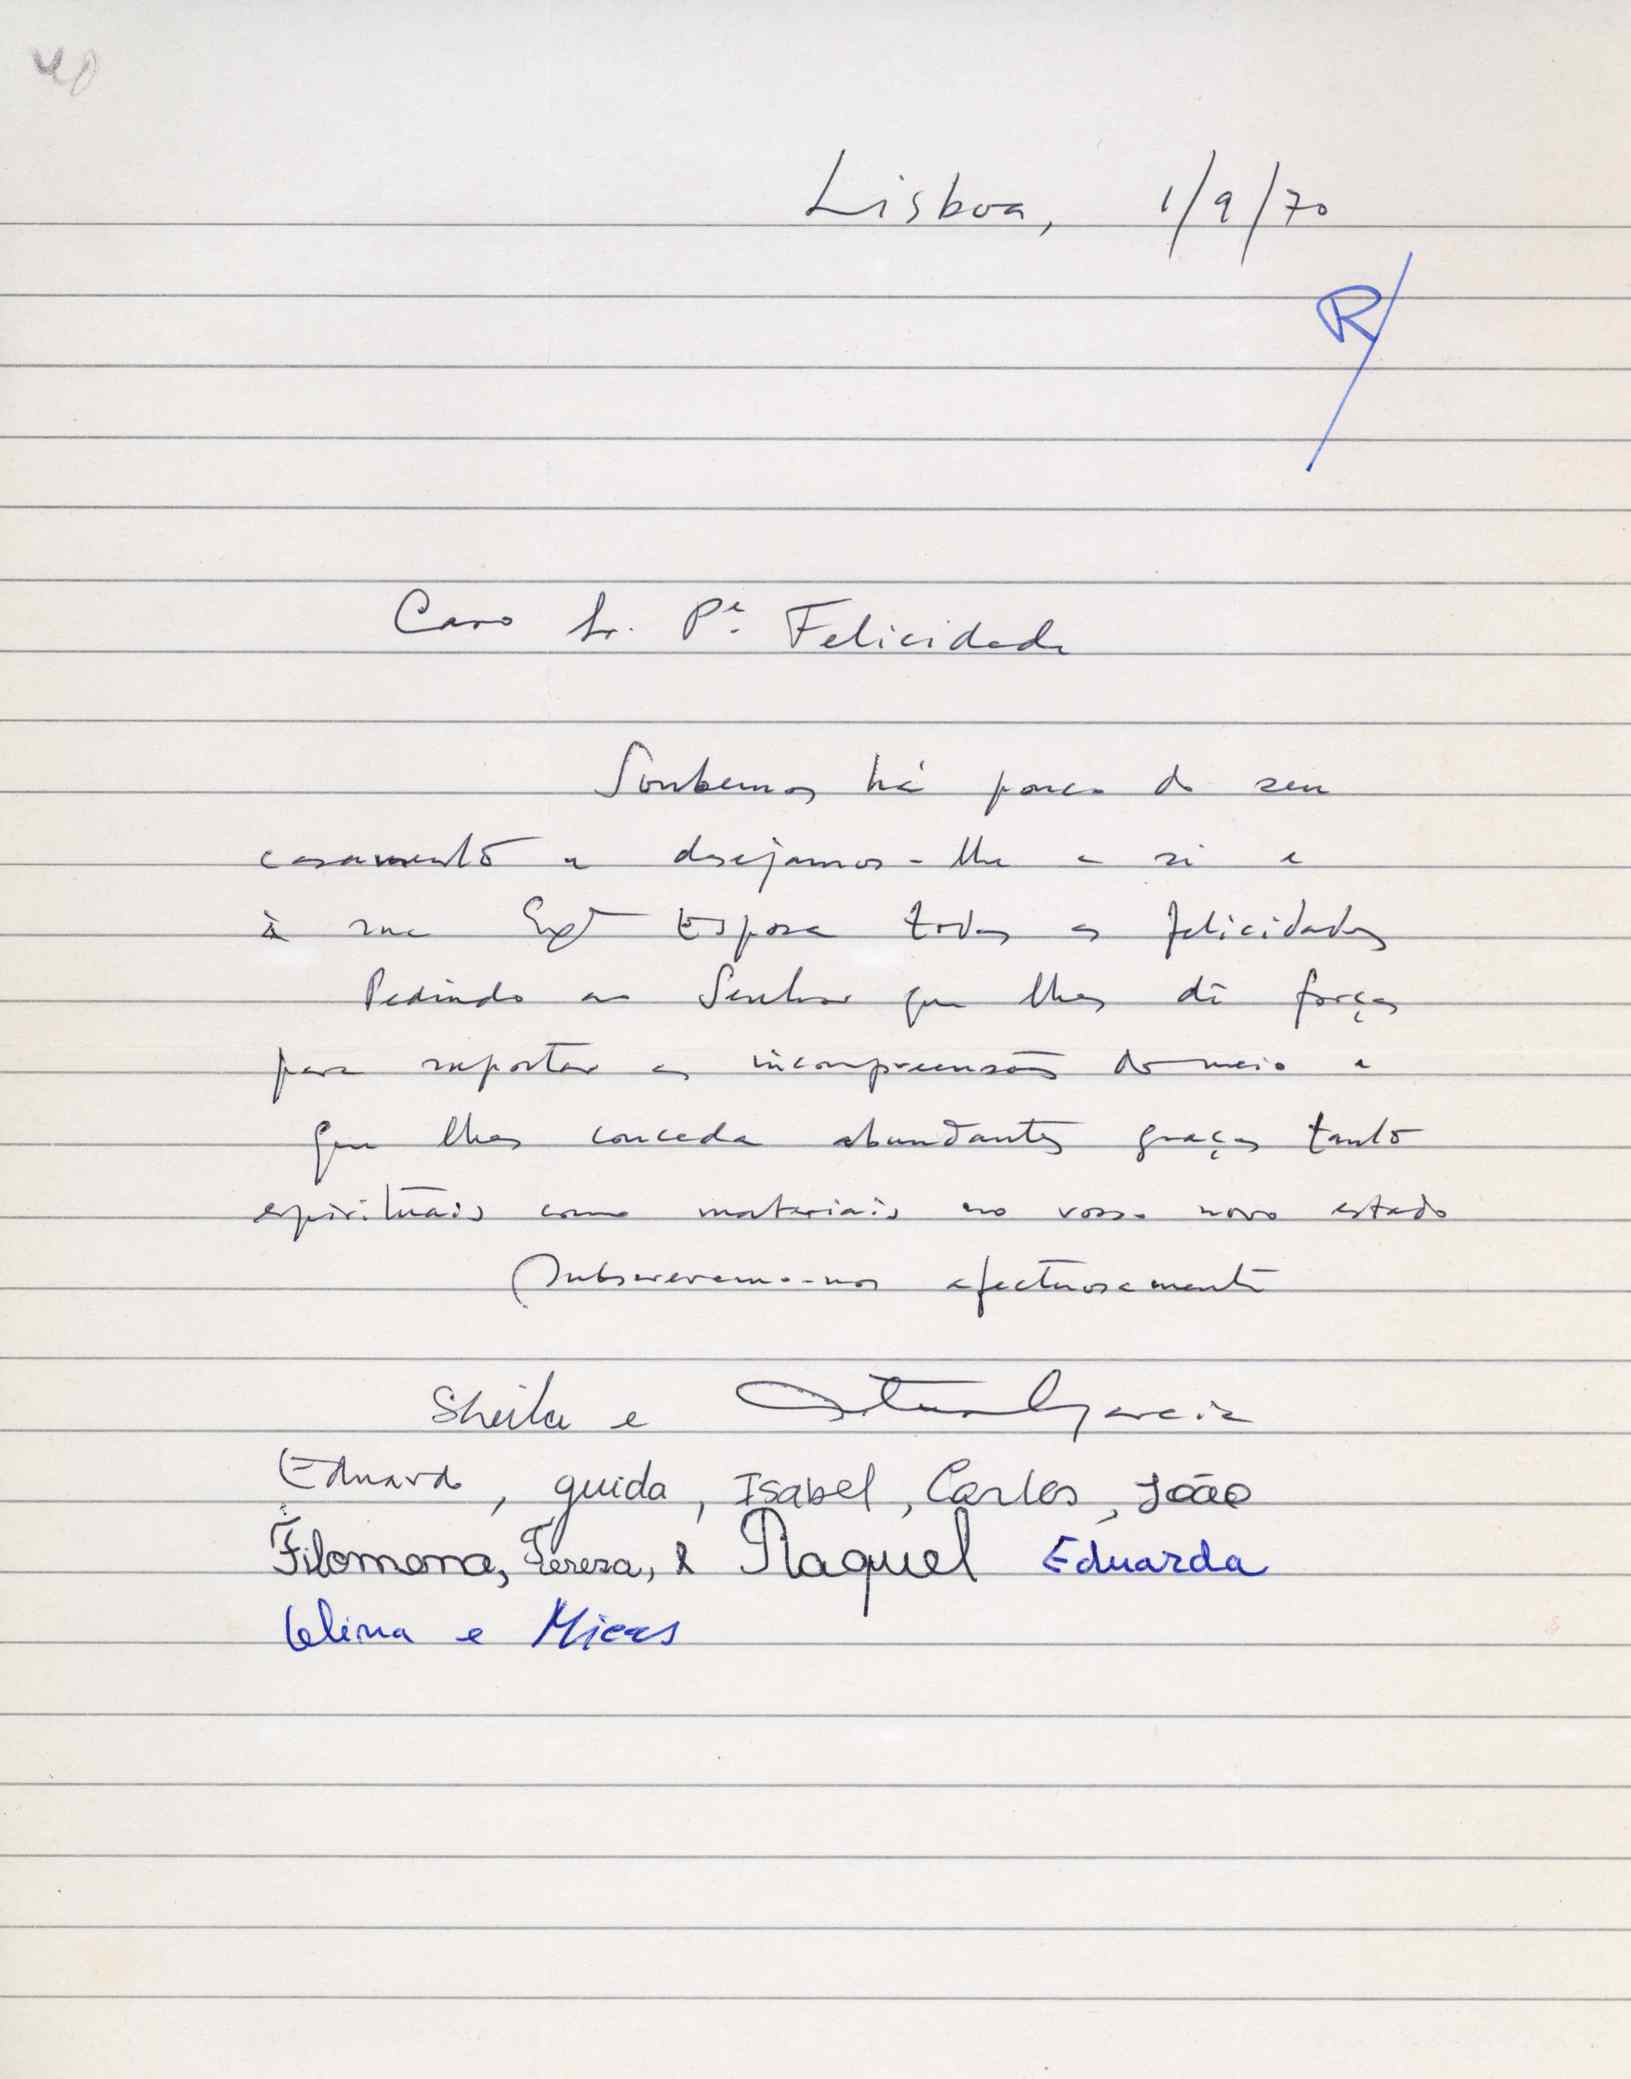 40
Lisboa, 1/9/70
R/
Caro Sr. Pe. Felicidade
Soubemos há pouco do seu
casamento e desejamos-lhe a si e
à sua Exª Esposa todas as felicidades
Pedindo ao Senhor que lhes dê forças
para suportar as incompreensões do meio e
que lhes conceda abundantes graças tanto
espirituais como materiais no vosso novo estado
Subscrevemo-nos afectuosamente
Sheila e Garcia
Eduardo, guida, Isabel, Carlos, João
Filomena, Teresa, & Raquel Eduarda
Celina e Micas